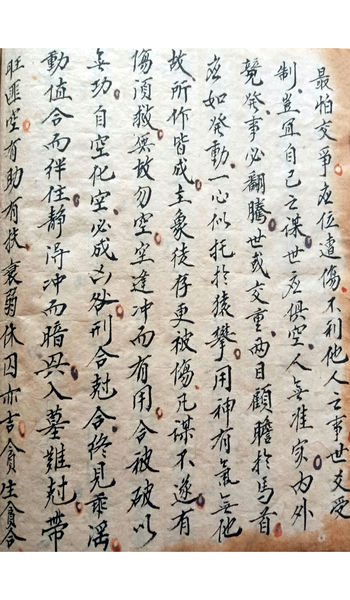 最怕交爭应位遭傷不利他人之事世爻受
制豈宜自己之谋世应俱空人無准实内外
競發事必翻騰世或交重两目顧瞻於馬首
应如發動一心似托於猿攀用神有氣無他
故所作皆成主象徒存更被傷凡謀不遂有
傷須救無故勿空空逢冲而有用合被破以
無功自空化空必成凶咎刑合尅合终見乖淫
動值合而绊住静得冲而暗兴入墓難尅帶
旺匪空有助有扶衰弱休囚亦吉貪生貪合